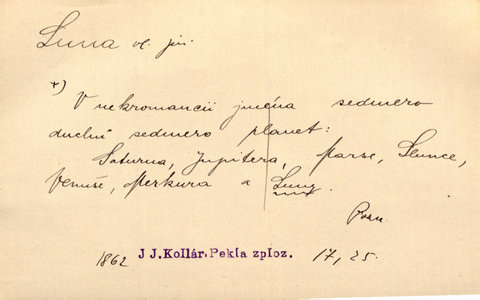 Luna vl. jm.
*)
V nekromancii jména sedmero
duchů sedmero planet:
Saturna, Jupitera, Marse, Slunce,
Venuše, Merkura a Luny.
Pozn.
1862 J J. Kollár. Pekla zploz. 17, 25.